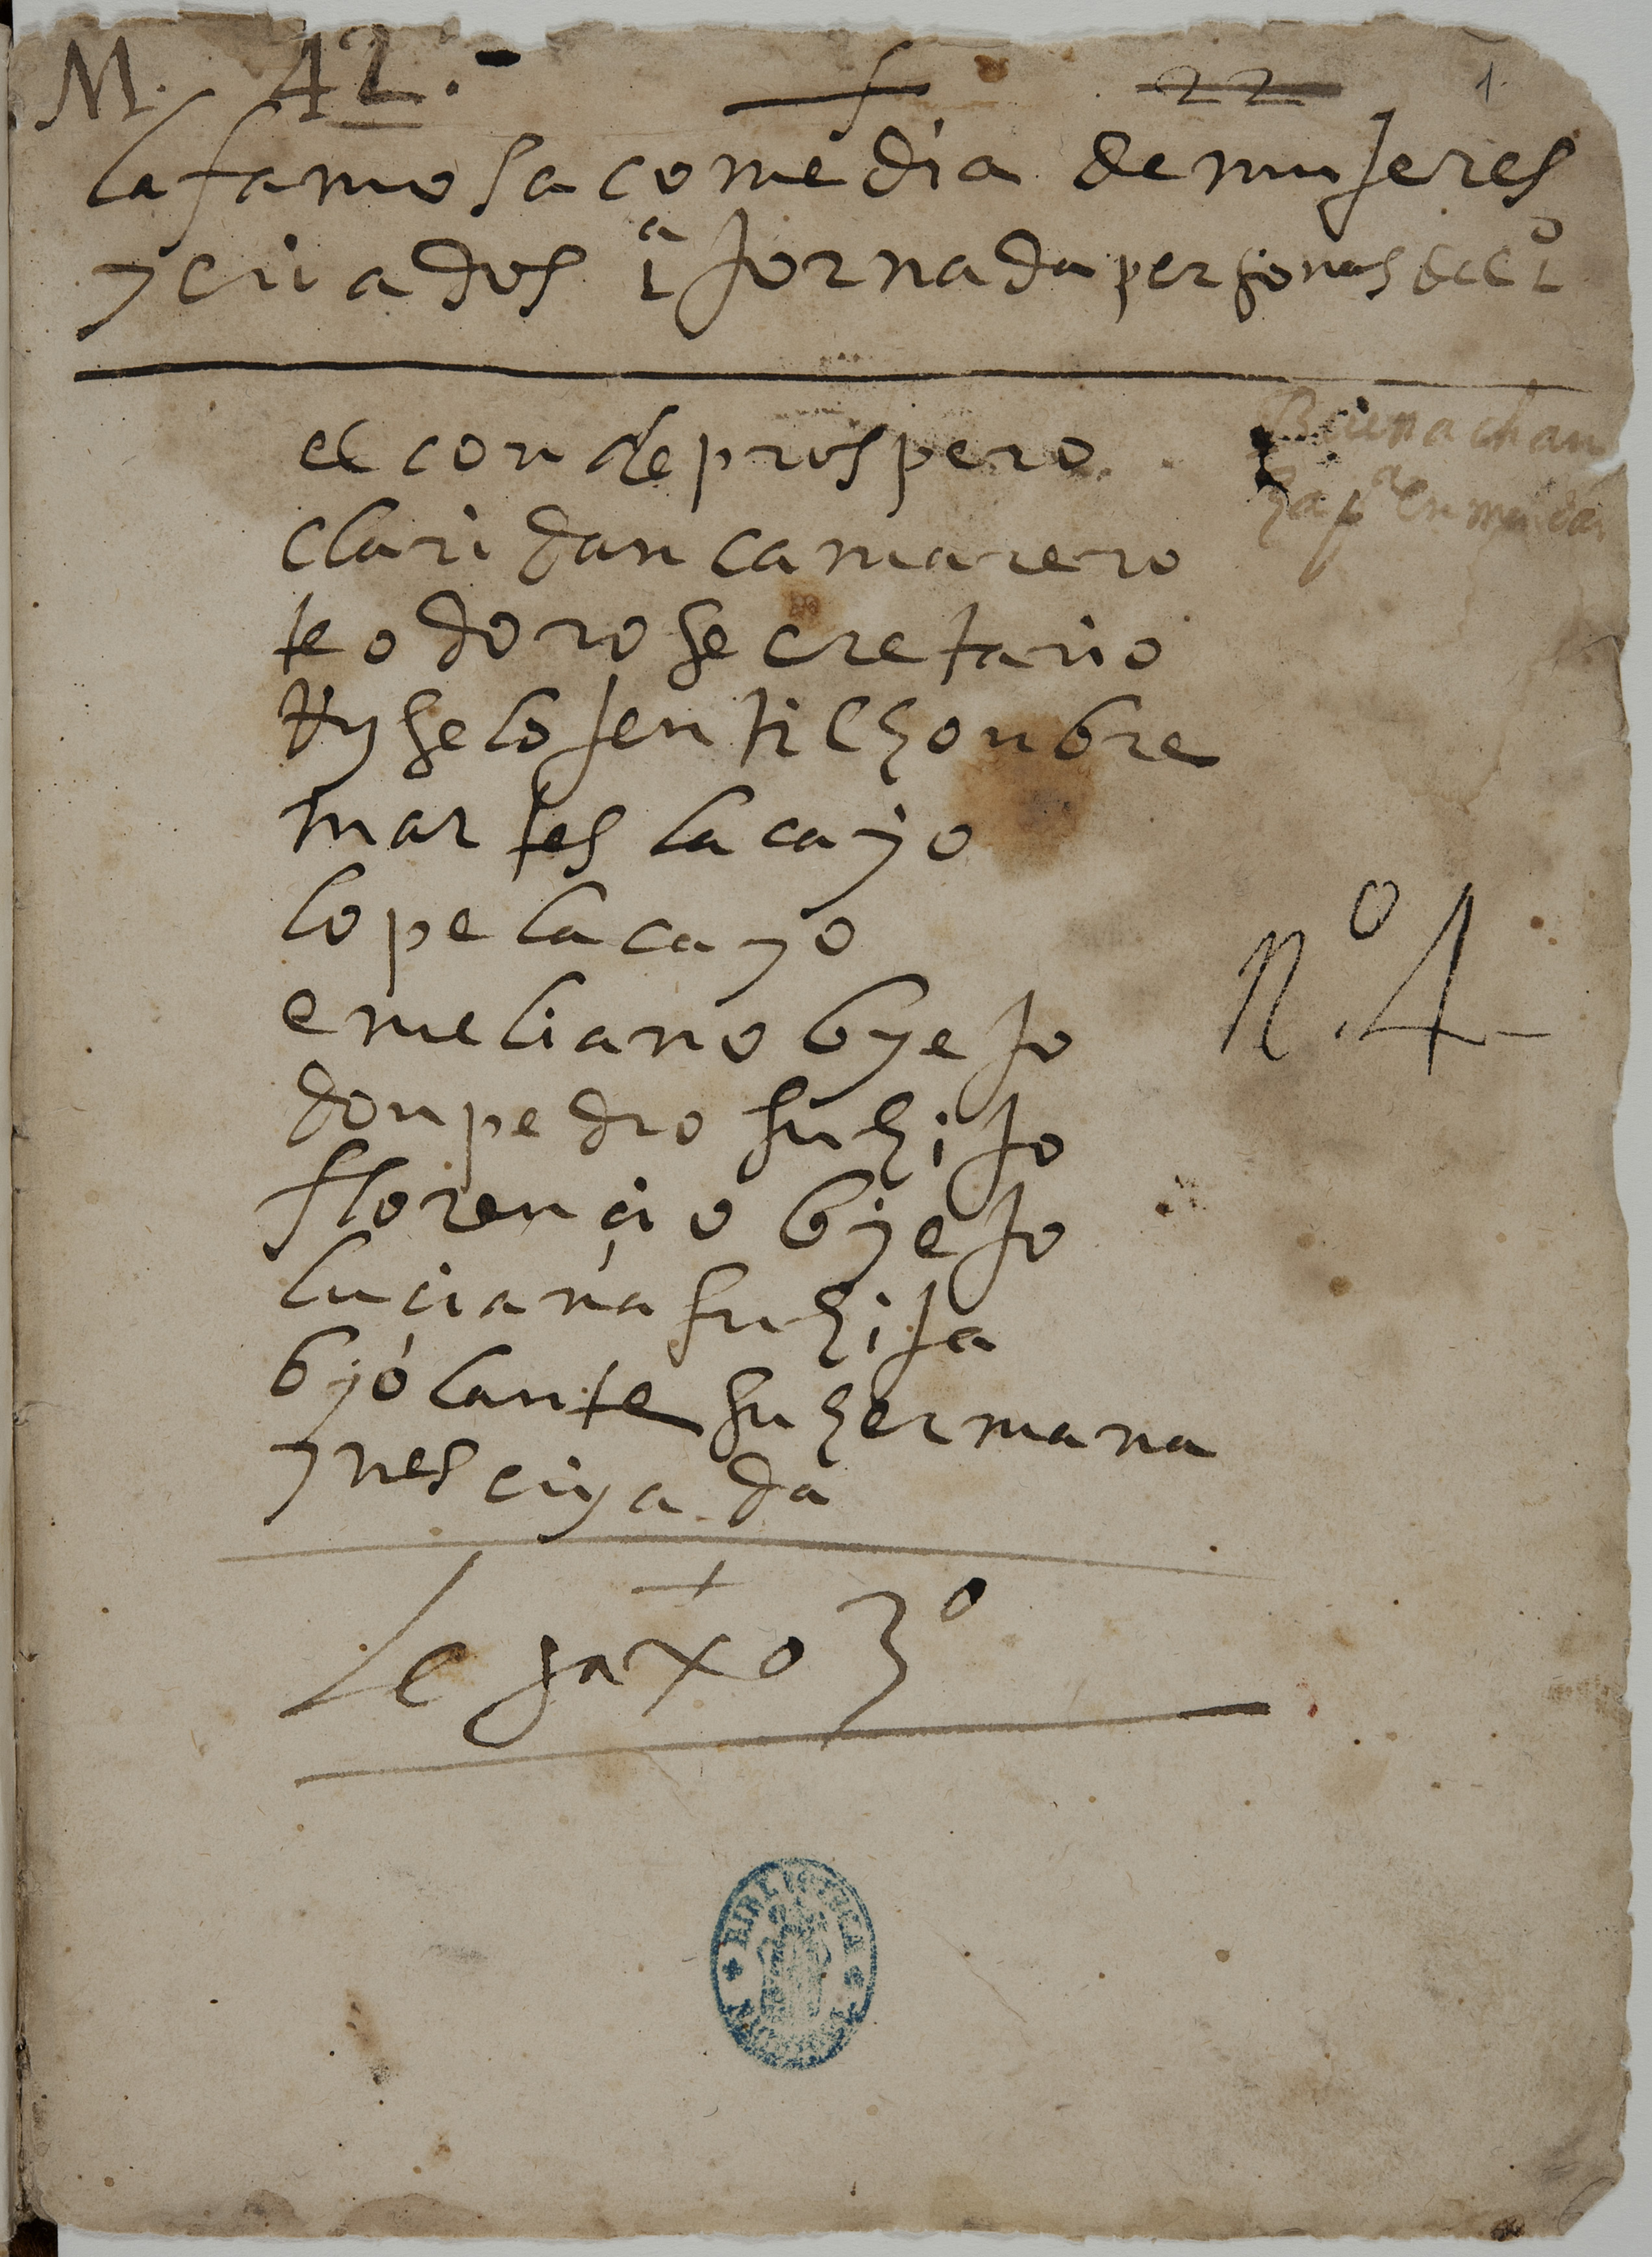 M. 42.-
22
1.
la famosa comedia de mujeres
y criados 1ª jornada personas de el 1º
el conde prospero
claridan camarero
teodoro secretario
jentilhonbre
martes lacayo
lope lacayo
emeliano byejo
don pedro su hijo
florençio byejo
luçiana su hija
byolante su hermana
ynes criyada
nº. 4-
Legaxo 3º
BIBLIOTECA NACIONAL